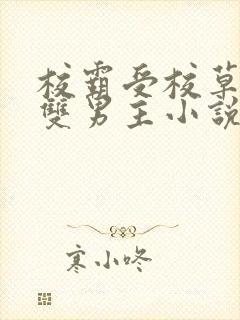 校霸受校草
雙男主小說
寒小咚